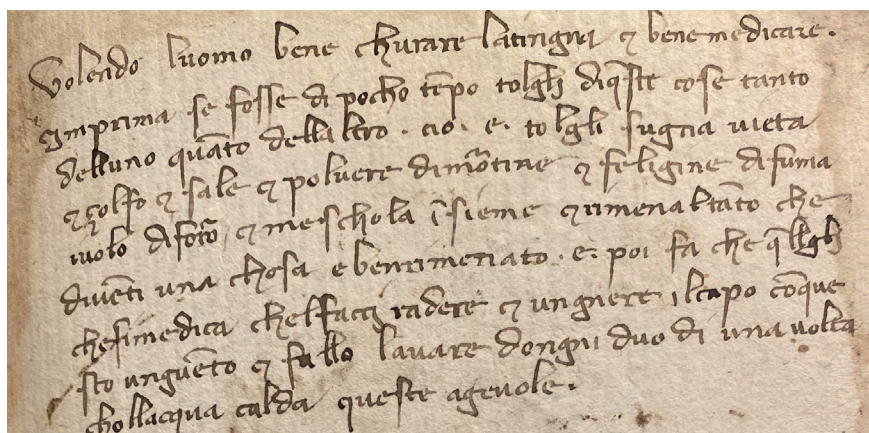 Volendo luomo bene churare latingnia ⁊ bene medicare.
Imprima se fosse di pocho tēpo tolghi diq̄ste cose tanto
delluno quāto dellaltro . cio . e . tolgli sugnia vieta
⁊ çolfo ⁊ sale ⁊ polvere di mōtine ⁊ feligine di fuma
iuolo di forō, ⁊ meschola īsieme ⁊ rimenaltāto che
divēti una chosa e benrimenato . e . poi fa che q̄llgh
chesimedica chelfacci radere ⁊ ungnere ilcapo cōque
sto unguēto ⁊ fallo lavare dongni duo di una volta
chollacqua calda queste agevole .